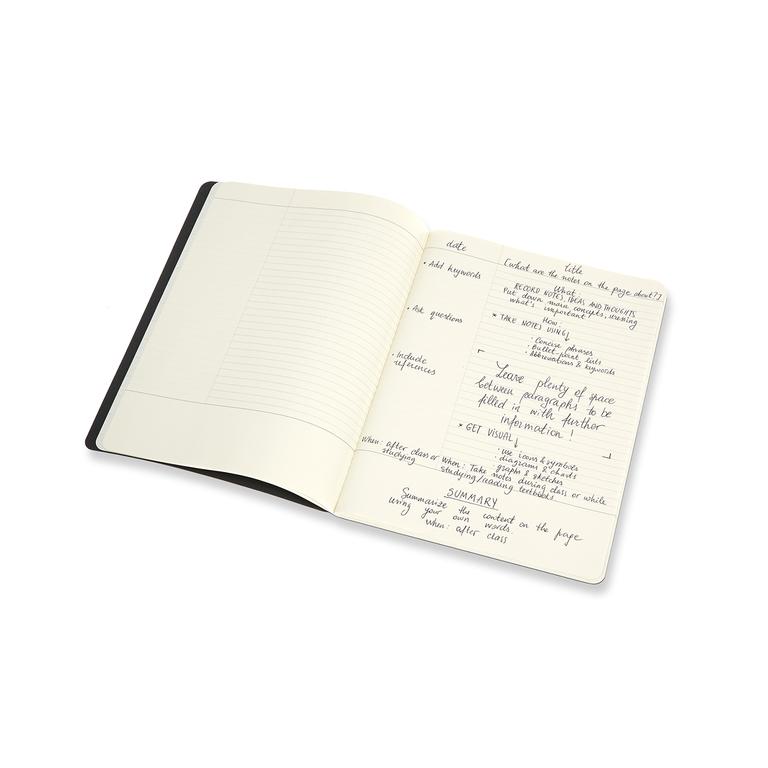 date
title
[what are the notes on the page about?]
• Add keywords
What:
RECORD NOTES, IDEAS AND THOUGHTS
Put down main concepts, stressing
what's important
• Ask questions
How:
* TAKE NOTES USING↓
• Concise phrases
• Bullet-point lists
• Abbreviations & keywords
• Include
references
Leave plenty of space
between paragraphs to be
filled in with further
information!
* GET VISUAL↓
• use icons & symbols
• diagrams & charts
• graphs & sketches
When: after class or
studying
When: Take notes during class or while
studying/reading textbooks
SUMMARY
Summarize the content on the page
using your own words.
When: after class